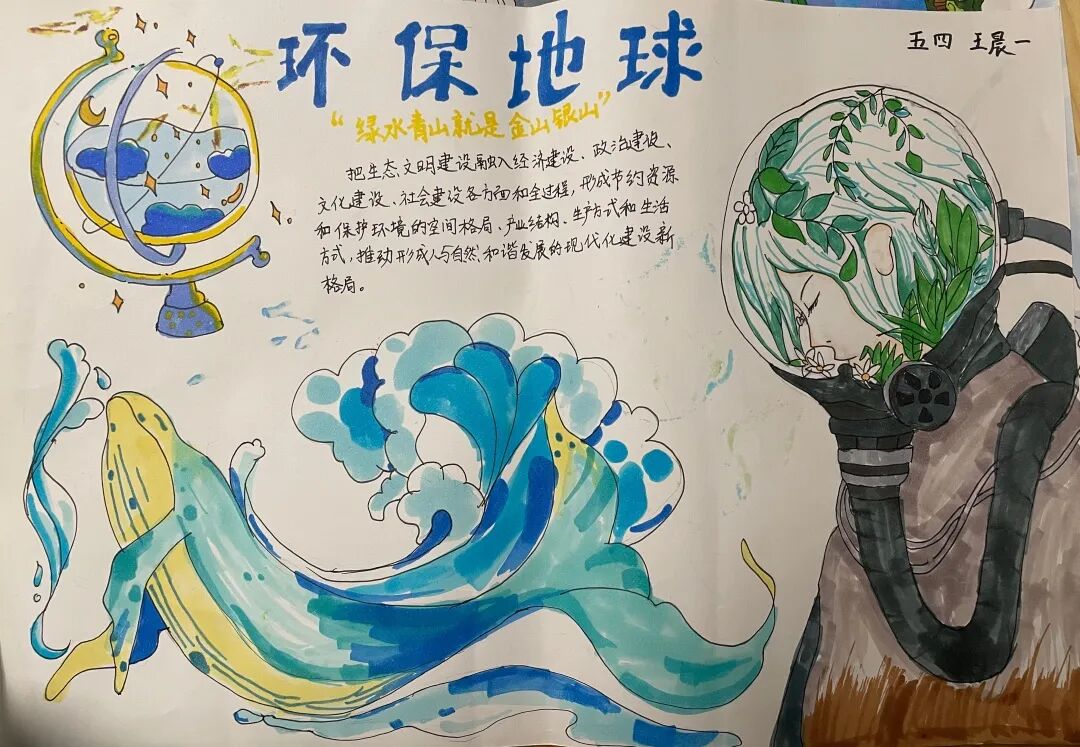 环保地球
五四 王晨一
“绿水青山就是金山银山”
把生态文明建设融入经济建设、政治建设、
文化建设、社会建设各方面和全过程,形成节约资源
和保护环境的空间格局、产业结构、生产方式和生活
方式,推动形成人与自然和谐发展的现代化建设新
格局。